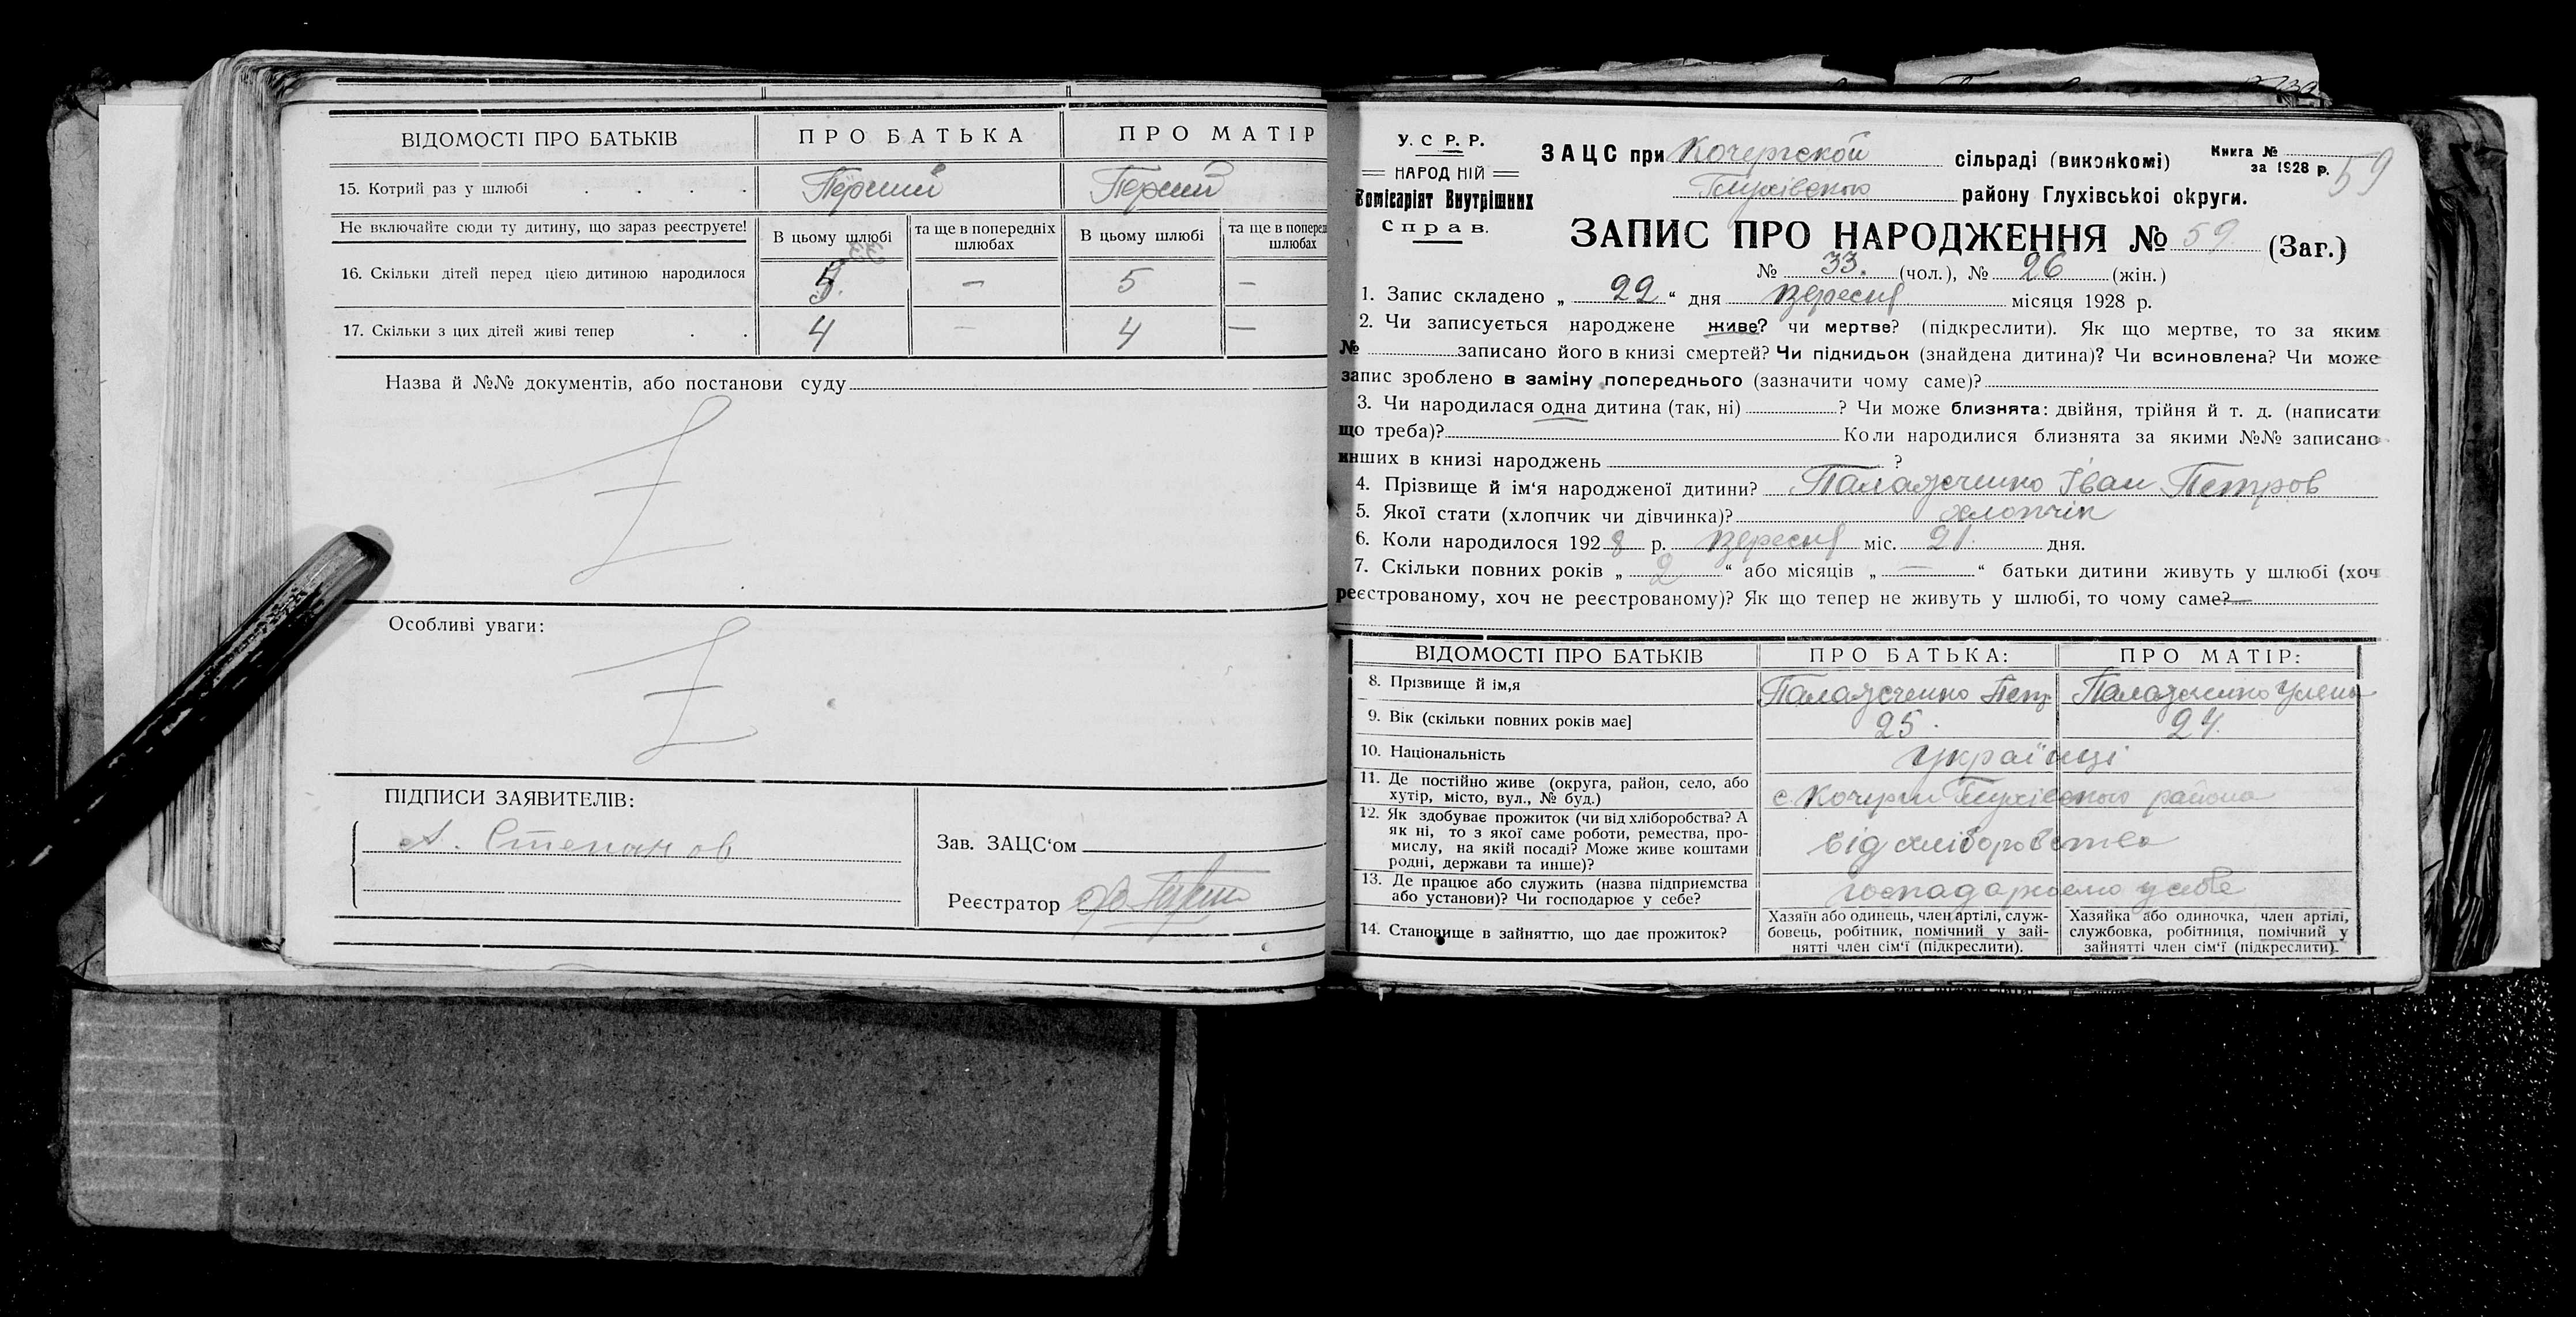 ВІДОМОСТІ ПРО БАТЬКІВ ПРО БАТЬКА ПРО МАТІР
15. Котрий раз у шлюбі Перший Перший
Не включайте сюди ту дитину, що зараз реєструєте! В цьому шлюбі та ще в попередніх шлюбах В цьому шлюбі та ще в поперед шлюбах
16. Скільки дітей перед цією дитиною народилося 5. — 5 —
17. Скільки з цих дітей живі тепер 4 — 4 —
Назва й №№ документів, або постанови суду
Особливі уваги:
ПІДПИСИ ЗАЯВИТЕЛІВ:
А. Степанов
Зав. ЗАЦС‘ом
Реєстратор
У. С Р. Р.
НАРОДНІЙ
Комісаріят Внутрішних
Справ.
ЗАЦС при Кочергской сільраді (виконкомі)
Книга №
за 1928 р. 59
Глухівсного району Глухівської округи.
ЗАПИС ПРО НАРОДЖЕННЯ № 59 (Заг.)
№ 33. (чол.), № 26 (жін.)
1. Запис складено „ 22 “ дня Вересня місяця 1928 р.
2. Чи записується народжене живе? чи мертве? (підкреслити). Як що мертве, то за яким
№ записано його в книзі смертей? Чи підкидьок (знайдена дитина)? Чи всиновлена? Чи може
запис зроблено в заміну попереднього (зазначити чому саме)?
3. Чи народилася одна дитина (так, ні) ? Чи може близнята: двійня, трійня й т. д. (написати
що треба)? Коли народилися близнята за якими №№ записано
инших в книзі народжень ?
4. Прізвище й ім‘я народженої дитини? Палажченко Іван Петров
5. Якої стати (хлопчик чи дівчинка)? хлопчік
6. Коли народилося 1928 р. Вересня міс. 21. дня.
7. Скільки повних років „ 2 “ або місяців „ — “ батьки дитини живуть у шлюбі (хоч
реєстрованому, хоч не реєстрованому)? Як що тепер не живуть у шлюбі, то чому саме?
ВІДОМОСТІ ПРО БАТЬКІВ ПРО БАТЬКА: ПРО МАТІР:
8. Прізвище й ім,я Палажченко Петр Палажченко Улена
9. Вік (скільки повних років має] 25. 24.
10. Національність українці
11. Де постійно живе (округа, район, село, або
хутір, місто, вул., № буд.) с. Кочерги Глухівсного района
12. Як здобуває прожиток (чи від хліборобства? А
як ні, то з якої саме роботи, ремества, про-
мислу, на якій посаді? Може живе коштами
родні, держави та инше)? від хліборовство
13. Де працює або служить (назва підприємства
або установи)? Чи господарює у себе? господарюемо у себе
14. Становище в зайняттю, що дає прожиток?
Хазяїн або одинець, член артілі, служ-
бовець, робітник, помічний у зай-
нятті член сім‘ї (підкреслити).
Хазяйка або одиночка, член артілі,
службовка, робітниця, помічний у
зайнятті член сім‘ї (підкреслити).